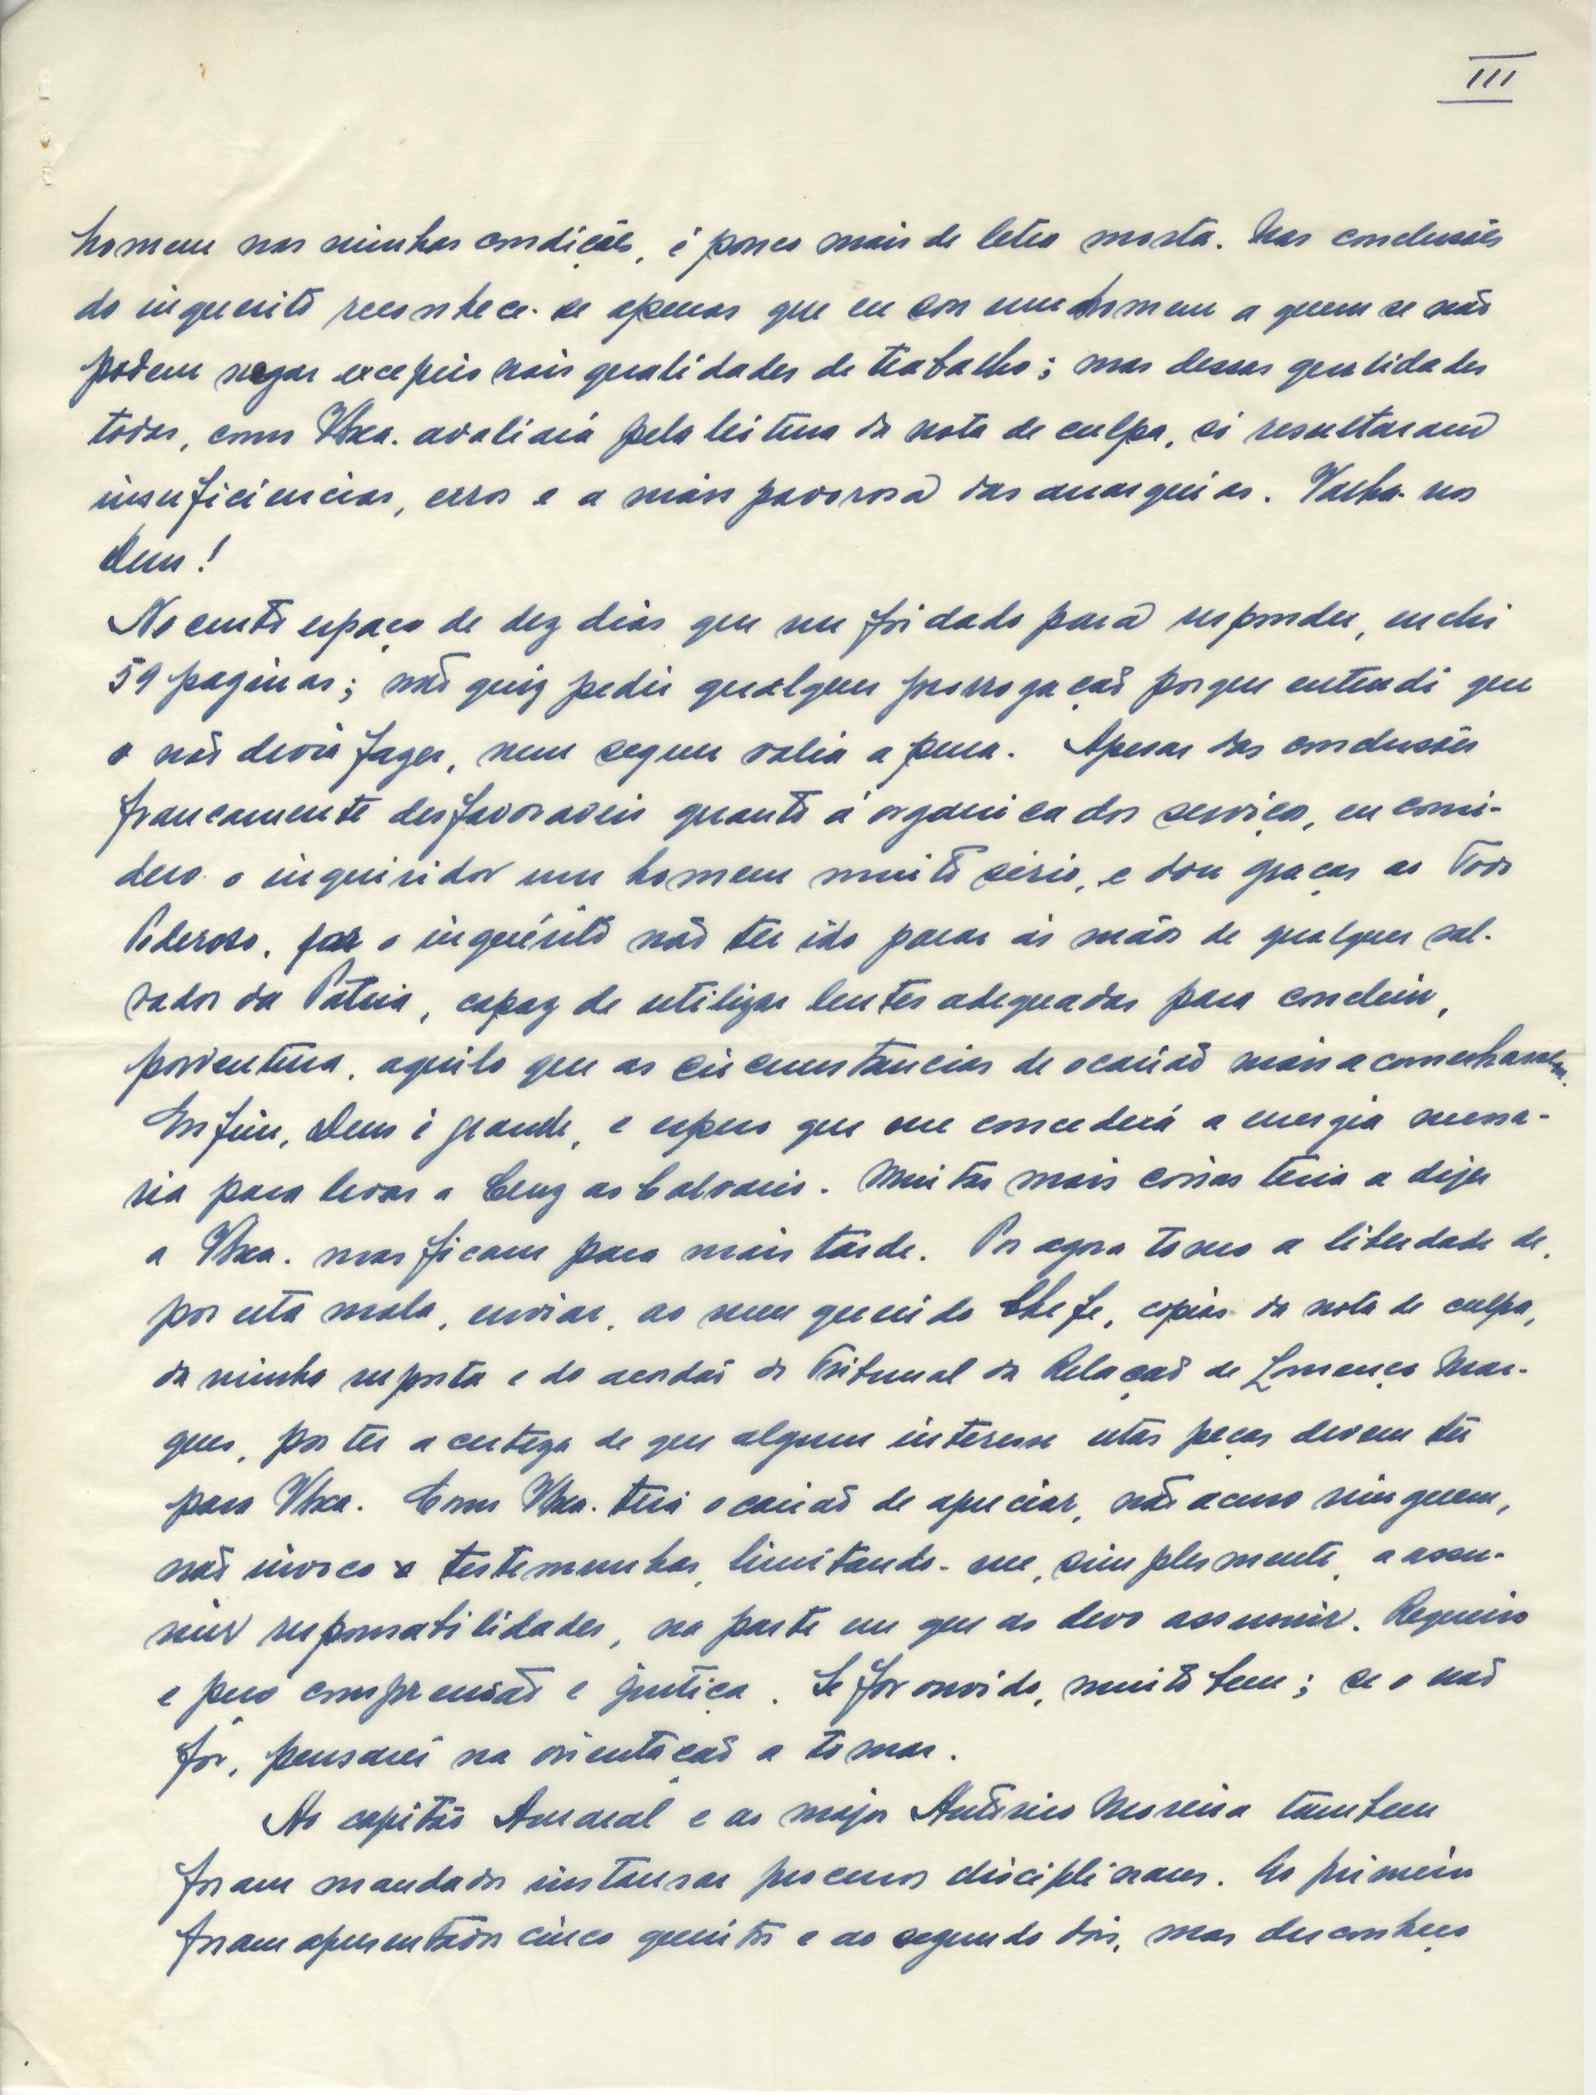 III
homem nas minhas condições, é pouco mais de letra morta. Nas conclusões
do inquerito reconhece-se apenas que eu sou um homem a quem se não
podem negar excepcionais qualidades de trabalho; mas dessas qualidades
todas, como VExa. avaliará pela leitura da nota de culpa, só resultaram
insuficiencias, erros e a mais pavorosa das anarquias. Valha-nos
Deus!
No curto espaço de dez dias que me foi dado para responder, enchi
59 paginas; não quiz pedir qualquer prorrogação porque entendi que
o não devia fazer, nem sequer valia a pena. Apesar das conclusões
francamente desfavoraveis quanto á organica dos serviços, eu consi-
dero o inquiridor um homem muito sério, e dou graças ao Todo
Poderoso, por o inquérito não ter ido parar ás mãos de qualquer sal-
vador da Patria, capaz de utilizar lentes adequadas para concluir,
porventura, aquilo que as circunstancias de ocasião mais aconselhassem.
Enfim, Deus é grande, e espero que me concederá a energia necessa-
ria para levar a Cruz ao Calvario. Muitas mais coisas teria a dizer
a VExa. mas ficam para mais tarde. Por agora tomo a liberdade de,
por esta mala, enviar, ao meu querido Chefe, copias da nota de culpa,
da minha resposta e do acordão do Tribunal da Relação de Lourenço Mar-
ques, por ter a certeza de que algum interesse estas peças devem ter
para VExa. Como VExa. terá ocasião de apreciar, não acuso ninguem,
não invoco testemunhas, limitando-me, simplesmente, a assu-
mir responsabilidades, na parte em que as devo assumir. Requeiro
e peço comprensão e justiça. Se fôr ouvido, muito bem; se o não
fôr, pensarei na orientação a tomar.
Ao capitão Amaral e ao major António Moreira tambem
foram mandados instaurar processos disciplinares. Ao primeiro
foram apresentados cinco quesitos e ao segundo dois, mas desconheço